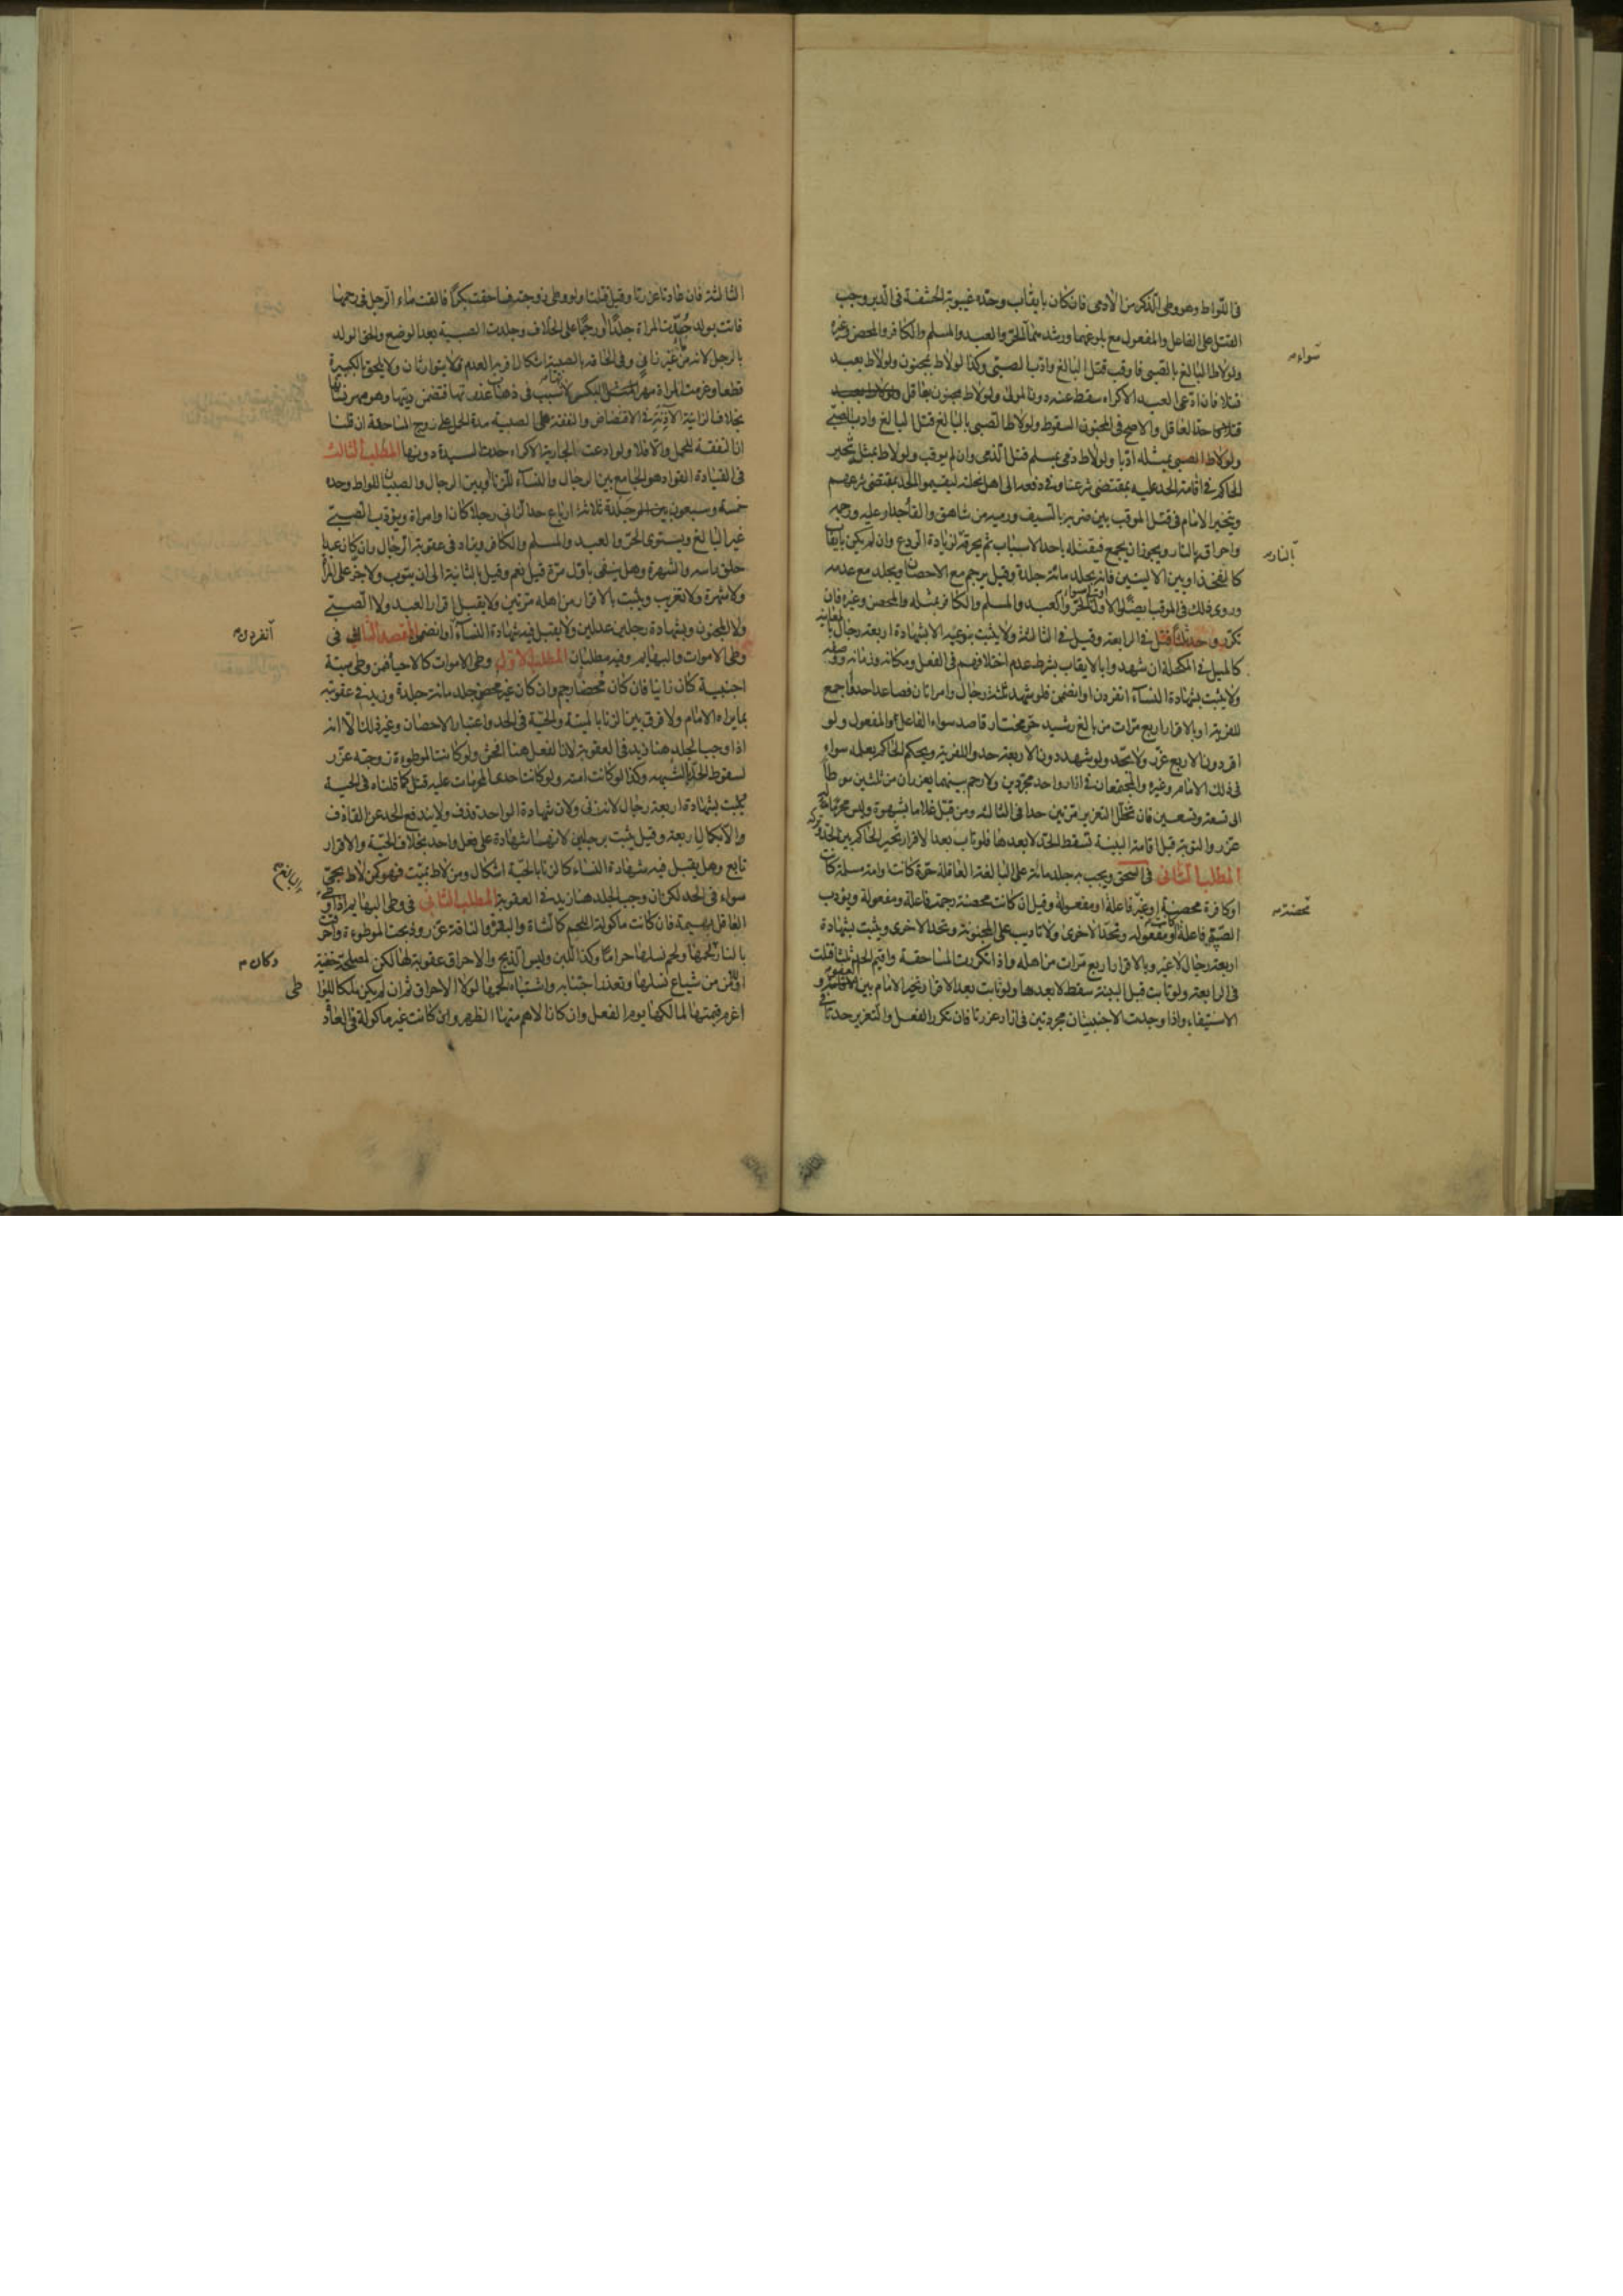 فى اللواط وهو وطى الذكر من الآدمى فان كان بايقاب وحده غيبوبة الحشفة فى الدبر وجب
القتل على الفاعل والمفعول مع بلوغهما ورشدهما الحر والعبد والمسلم والكافر والمحصن وغيره
سواء
ولو لاط البالغ بالصبى فاوقب قتل البالغ وادب الصبى وكذا لو لاط بمجنون ولو لاط بعبد
قتلا فان ادعى العبد الاكراه سقط عنه دون المولى ولو لاط مجنون بعاقل
حد العاقل والاصح فى المجنون السقوط ولو لاط الصبى بالبالغ قتل البالغ وادب الصبى
ولو لاط الصبى بمثله ادبا ولو لاط ذمى بمسلم قتل الذمى وان لم يوقب ولو لاط بمثله تخير
الحاكم فى اقامة الحد عليه بمقتضى شرعنا وفى دفعه الى اهل نحلته ليقيموا الحد بمقتضى شرعهم
ويتخير الامام فى قتل الموقب بين ضربه بالسيف ورميه من شاهق والقاء جدار عليه ورجمه
واحراقه بالنار ويجوز ان يجمع فيقتله باحد الاسباب ثم يحرقه لزيادة الردع وان لم يكن بايقاب
بالنار
كالتفخيذ او بين الاليتين فانه يجلد مائة جلدة وقيل يرجم مع الاحصان ويجلد مع عدمه
وروى ذلك فى الموقب ايضا والاول اشهر سواء الحر والعبد والمسلم والكافر بمثله والمحصن وغيره فان
تكرر وحد ثلثا قتل فى الرابعة وقيل فى الثالثة ولا يثبت بنوعيه الا بشهادة اربعة رجال بالمعاينة
كالميل فى المكحلة ان شهدوا بالايقاب بشرط عدم اختلافهم فى الفعل ومكانه وزمانه ووصفه
ولا يثبت بشهادة النساء انفردن او انضممن فلو شهد ثلثة رجال وامراتان فصاعدا حدوا اجمع
للفرية او بالاقرار اربع مرات من بالغ رشيد حر مختار قاصد سواء الفاعل والمفعول ولو
اقر دون الاربع عزر ولا يحد ولو شهد دون الاربعة حدوا للفرية ويحكم الحاكم بعلمه سواء
فى ذلك الامام وغيره والمجتمعان فى ازار واحد مجردين ولا رحم بينهما يعزران من ثلثين سوطا
الى تسعة وتسعين فان تخلل التعزير مرتين حدا فى الثالثة ومن قبل غلاما بشهوة وليس محرما له
عزر والتوبة قبل اقامة البينة تسقط الحد لا بعدها فلو تاب بعد الاقرار تخير الحاكم بين الحد وتركه
المطلب الثانى فى السحق ويجب به جلد مائة على البالغة العاقلة حرة كانت او امة مسلمة كانت
او كافرة محصنة او غير محصنة فاعلة او مفعولة وقيل ان كانت محصنة رجمت فاعلة ومفعولة ويؤدب
محصنة
الصبية فاعلة او مفعولة وتحد الاخرى ولا تاديب على المجنونة وتحد الاخرى ويثبت بشهادة
اربعة رجال لا غير وبالاقرار اربع مرات من اهله واذا تكررت المساحقة واقيم الحد ثلثا قتلت
فى الرابعة ولو تابت قبل البينة سقط لا بعدها ولو تابت بعد الاقرار تخير الامام بين العفو و
الاستيفاء واذا وجدت الاجنبيتان مجردتين فى ازار عزرتا فان تكرر الفعل والتعزير حدتا فى
الثالثة فان عادتا عزرتا وقيل قتلتا ولو وطى زوجته فساحقت بكرا فالقت ماء الرجل فى رحمها
فاتت بولد حدت المراة جلدا او رجما على الخلاف وجلدت الصبية بعد الوضع والحق الولد
بالرجل لانه من غير زان وفى الحاقه بالصبية اشكال اقربه العدم فلا يتوارثان ولا يلحق بالكبيرة
قطعا وغرمت المراة مهر المثل للبكر لانها سبب فى ذهاب عذرتها فتضمن ديتها وهو مهر نسائها
بخلاف الزانية الآذنة فى الاقتضاض والنفقة على الصبية مدة الحمل على زوج المساحقة ان قلنا
ان النفقة للحمل والا فلا ولو ادعت الجارية الاكراه حدت السيدة دونها المطلب الثالث
فى القيادة القواد هو الجامع بين الرجال والنساء للزنا او بين الرجال والصبيان للواط وحده
خمسة وسبعون جلدة ثلاثة ارباع حد الزانى رجلا كان او امراة ويؤدب الصبى
غير البالغ ويستوى الحر والعبد والمسلم والكافر ويزاد فى عقوبة الرجال وان كان عبدا
حلق راسه والشهرة وهل ينفى باول مرة قيل نعم وقيل بالثانية الى ان يتوب ولا جز على المراة
ولا شهرة ولا تغريب ويثبت بالاقرار من اهله مرتين ولا يقبل اقرار العبد ولا الصبى
ولا المجنون وبشهادة رجلين عدلين ولا يقبل فيه شهادة النساء او انضممن المقصد الثالث فى
انفردن
وطى الاموات والبهائم وفيه مطلبان المطلب الاول وطى الاموات كالاحياء فمن وطى ميتة
اجنبية كان زانيا فان كان محصنا رجم وان كان غير محصن جلد مائة جلدة وزيد فى عقوبته
بما يراه الامام ولا فرق بين الزنا بالميتة والحية فى الحد واعتبار الاحصان وغير ذلك الا انه
اذا وجب الجلد هنا زيد فى العقوبة لان الفعل هنا افحش ولو كانت الموطوءة زوجته عزر
لسقوط الحد بالشبهة وكذا لو كانت امته ولو كانت احدى المحرمات عليه قتل كما قلناه فى الحية
يثبت بشهادة اربعة رجال لانه زنى ولان شهادة الواحد قذف ولا يندفع الحد عن القاذف
والا بكمال اربعة وقيل يثبت برجلين لانها شهادة على فعل واحد بخلاف الحية والاقرار
تابع وهل يقبل فيه شهادة النساء كالزنا بالحية اشكال ومن لاط بميت فهو كمن لاط بحى
سواء فى الحد لكن ان وجب الجلد هنا زيد فى العقوبة المطلب الثانى فى وطى البهائم اذا وطى
البالغ
العاقل بهيمة فان كانت ماكولة اللحم كالشاة والبقرة والناقة عزر وذبحت الموطوءة واحرقت
بالنار لحمها ولحم نسلها حراما وكذا اللبن وليس الذبح والاحراق عقوبة لها لكن لمصلحة خفية
وكان
او للامن من شياع نسلها وتعذر اجتنابه واشتباه لحمها لولا الاحراق ثم ان لم يكن ملكا للوا
طى
اغرم قيمتها لمالكها يوم الفعل وان كان الاهم منها الظهر وان كانت غير ماكولة فى العادة